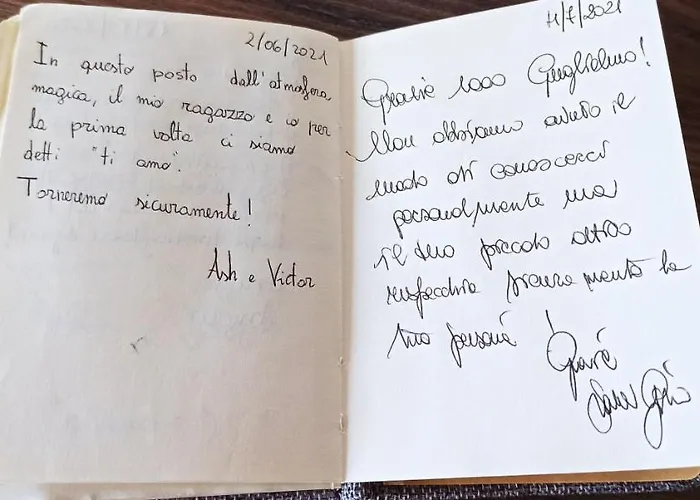 2/06/2021
In questo posto dall'atmosfera
magica, il mio ragazzo e io per
la prima volta ci siamo
detti "ti amo".
Torneremo sicuramente!
Ash e Victor
11/7/2021
Grazie 1000 Guglielmo!
Non abbiamo avuto il
modo di conoscerci
personalmente ma
il tuo piccolo attico
rispecchia sicuramente la
tua persona!
Grazie
Sara